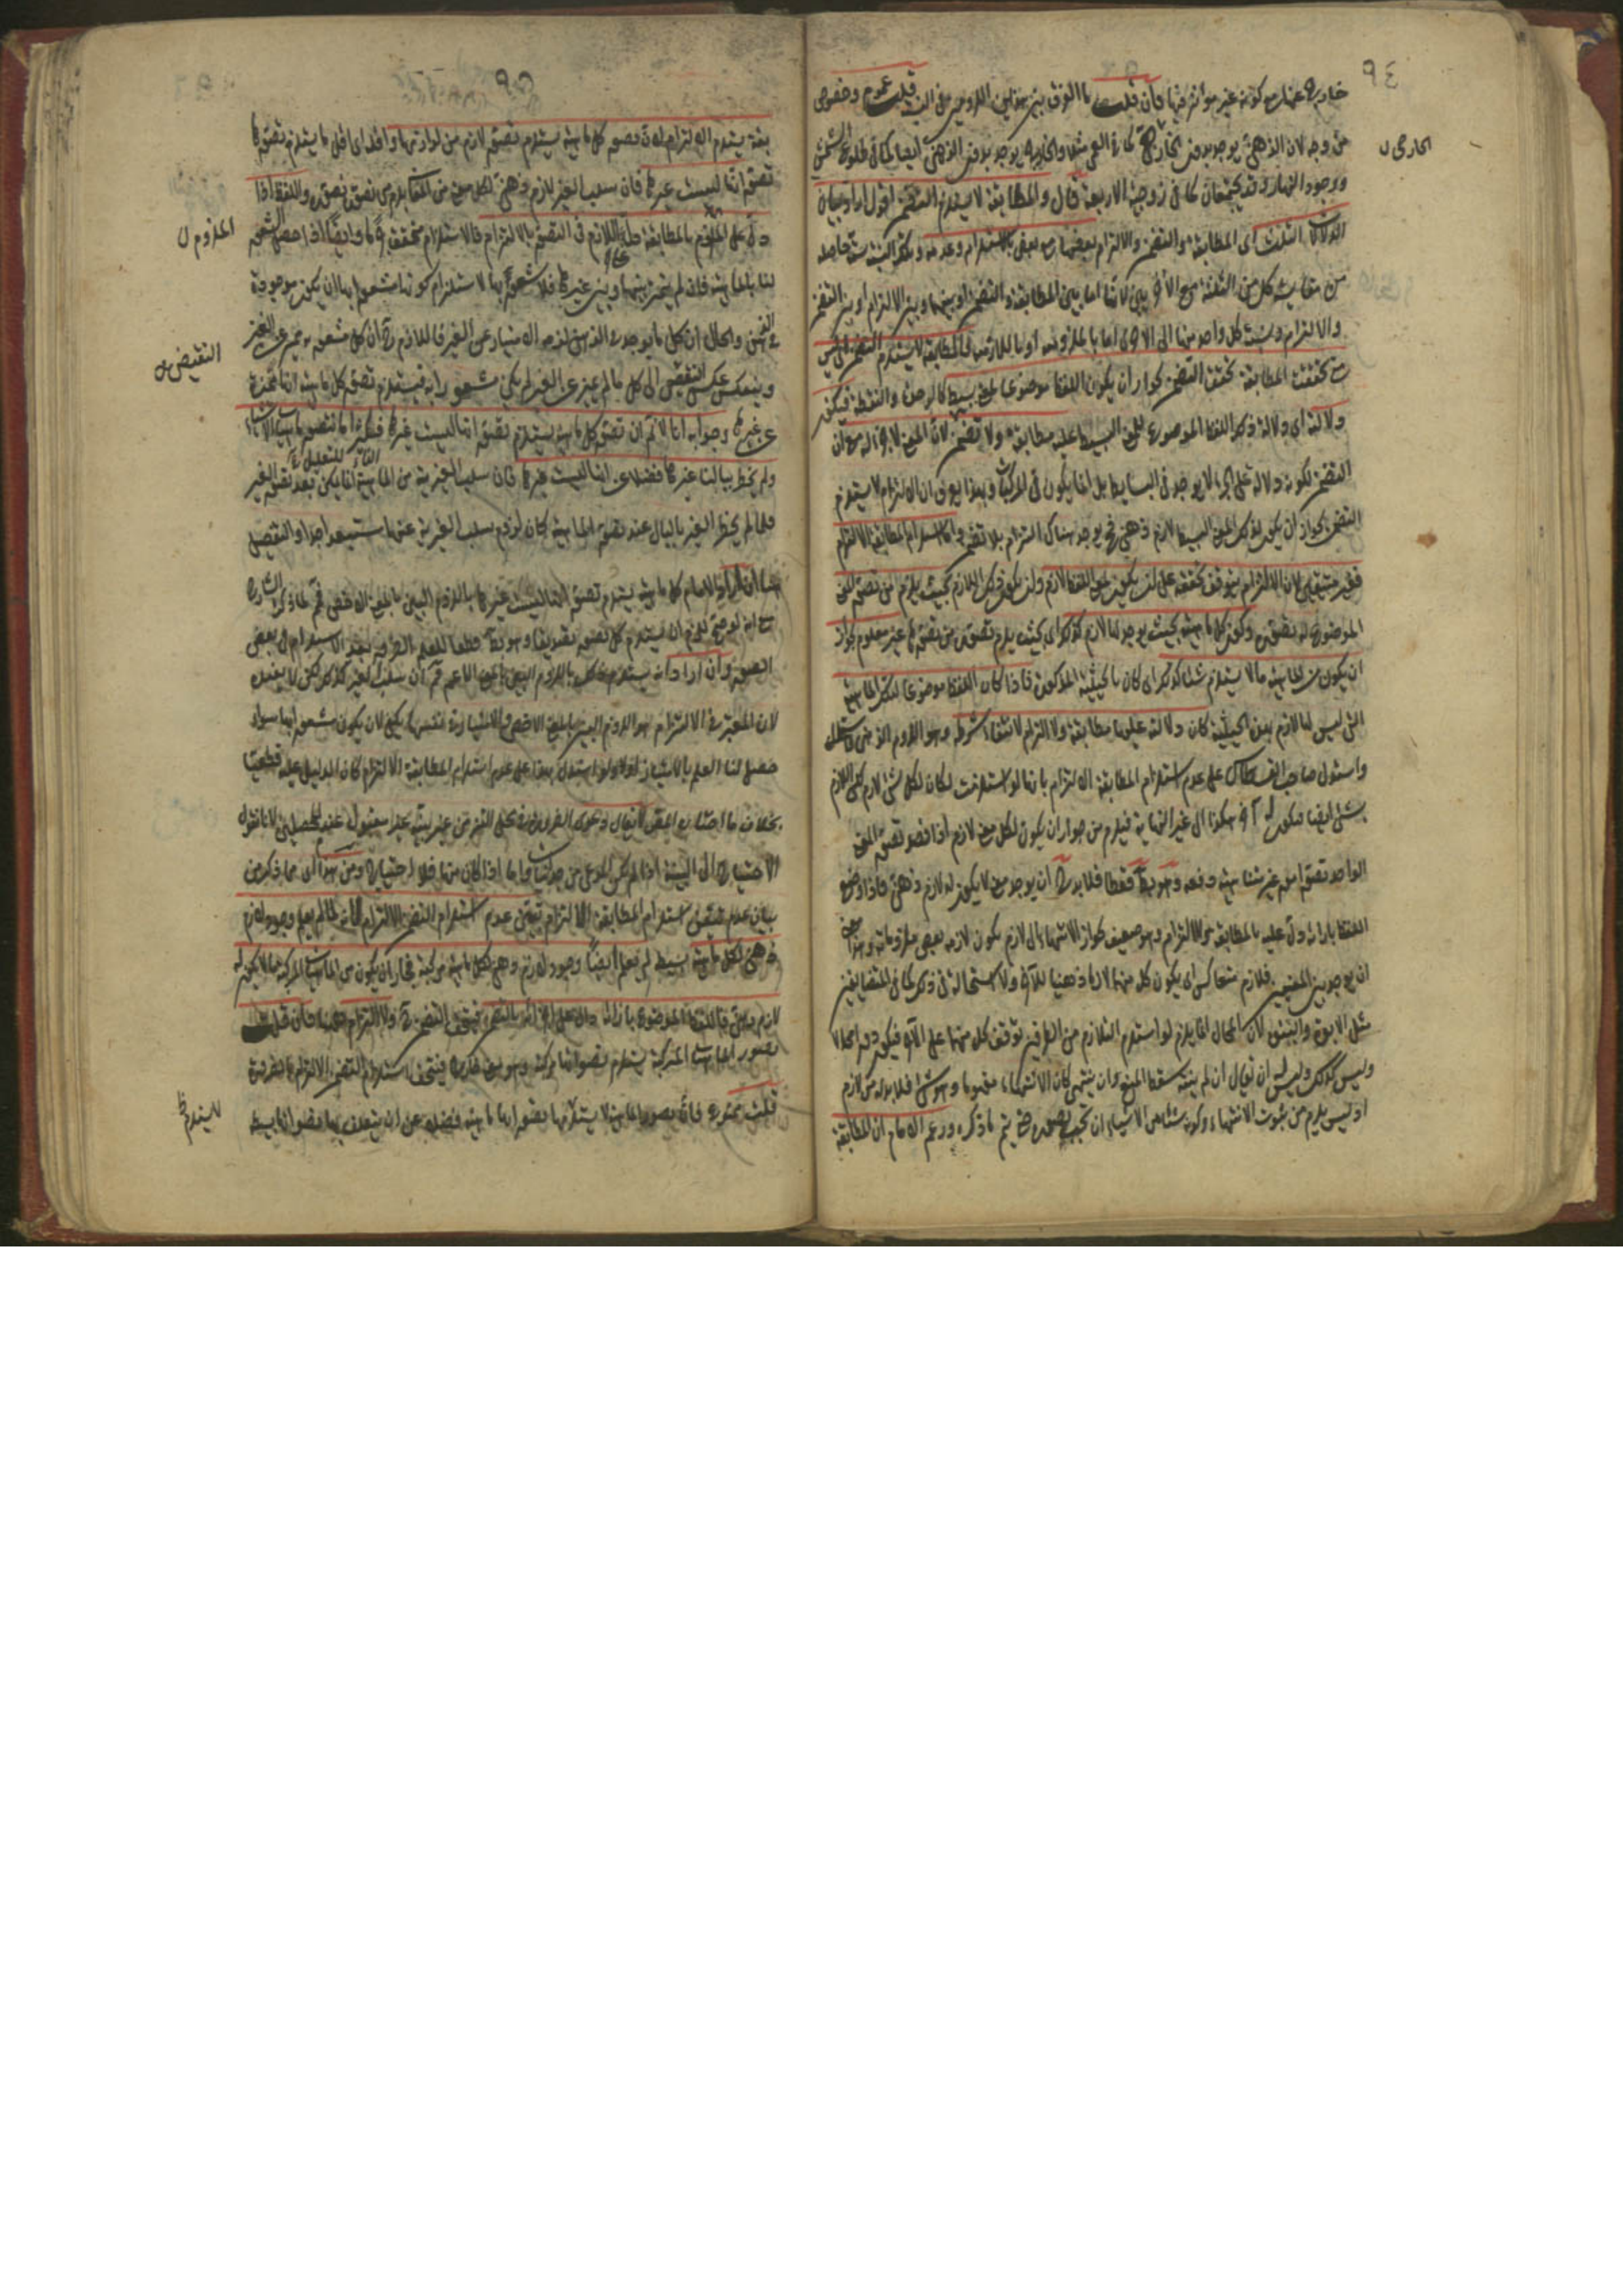 ٩٤
خارج عنها مع كونه غير موائم فيها فإن قلت ما الفرق بين هذين اللزومين في النسبة قلت عموم وخصوص
من وجه لان الذهني يوجد بدون الخارجي كما في العمى مثلا والخارجي يوجد بدون الذهني ايضا كما في طلوع الشمس
ووجود النهار وقد يجتمعان كما في زوجية الاربعة قال والمطابقة لا يستلزم التضمن اقول اراد بيان
الدلالات الثلث اى المطابقة والتضمن والالتزام بعضها مع بعض بالاستلزام وعدمه وتلك النسبة ستة حاصلة
من مقايسة كل من الثلثة مع الأخريين لانها اما بين المطابقة والتضمن او بينها وبين الالتزام او بين التضمن
والالتزام ونسبة كل واحد منها الى الاخرى اما بالملزومية او باللازمية فالمطابقة لا يستلزم التضمن اى ليس
متى تحققت المطابقة تحقق التضمن لجواز ان يكون اللفظ موضوعا لمعنى بسيط كالوحدة والنقطة فيكون
دلالته اى دلالة ذلك اللفظ الموضوع للمعنى البسيط عليه مطابقة ولا تضمن لان المعنى لا جزء له مع ان
التضمن لكونه دلالة على الجزء لا يوجد في البسايط بل انما يكون في المركبات وبهذا يعرف ان الالتزام لا يستلزم
التضمن لجواز ان يكون لذلك المعنى البسيط لازم ذهني فح يوجد هناك التزام بلا تضمن واما استلزام المطابقة الالتزام
فغير متيقن لان الالتزام يتوقف تحققه على ان يكون لمعنى اللفظ لازم وان يكون ذلك اللازم بحيث يلزم من تصور المعنى
الموضوع له تصوره وكون كل ماهية بحيث يوجد لها لازم كذلك اى بحيث يلزم تصوره من تصورها غير معلوم لجواز
ان يكون من الماهية ما لا يستلزم شيئا كذلك اى كان بالحيثية المذكورة فاذا كان اللفظ موضوعا لتلك الماهية
التي ليس لها لازم بهذه الحيثية كان دلالته عليها مطابقة ولا التزام لانتفاء شرطه وهو اللزوم الذهني
واستدل صاحب القسطاس على عدم استلزام المطابقة الالتزام بانها لو استلزمت لكان لكل شئ لازم
شئ ايضا فيكون له آخر هكذا الى غير النهاية فيلزم من جواز ان يكون لكل معنى لازم اذا قصد تصور المعنى
الواحد تصور امور غير متناهية دفعة وهو بط قطعا فلا بد ان يوجد معنى لا يكون له لازم ذهني فاذا وضع
اللفظ بازائه دل عليه بالمطابقة بلا التزام وهو ضعيف لجواز الانتهاء الى لازم يكون لازمه بعض ملزوماته
ان يوجد بين المعنيين تلازم متعاكس اى يكون كل منهما لازما ذهنيا للآخر ولا استحالة في ذلك كما في المتضايفين
مثل الابوة والبنوة لان المحال انما يلزم لو استلزم التلازم من الطرفين توقف كل منهما على الآخر فيكون دورا محالا
وليس كذلك وليس ان يقال ان لم ينته سقط المنع وان ينتهى كان الانتهاء مفهوما وهو شئ فلا بد له من لازم
اذ ليس يلزم من ثبوت الانتهاء وكونه شيئا من الاشياء ان يجب تصوره حتى يتم ما ذكره وزعم الامام ان المطابقة
الخارجى ن
٩٥
بعينه يستلزم الالتزام لان تصور كل ماهية يستلزم تصور لازم من لوازمها واقله اى اقل ما يستلزم تصورها
تصور انها ليست غيرها فان سلب الغير لازم ذهني لكل معنى من المعاني يلزم من تصوره تصوره واللفظ اذا
دل على الملزوم بالمطابقة دل على اللازم في التصور بالالتزام فالاستلزام متحقق وايضا اذا حصل الشعور
لنا بالماهية فان لم يتميز بينها وبين غيرها فلا شعور بها لاستلزام كونها مشعورا بها ان يكون موجودة
في الذهن والحال ان كل ما يوجد في الذهن لزمه الامتياز عن الغير فاللازم ان كل مشعور به مميز عن الغير
وينعكس عكس النقيض الى كل ما لم يميز عن الغير لم يكن مشعورا به فيستلزم تصور كل ماهية انها متميزة
عن غيرها وجوابه انا لا نم ان تصور كل ماهية يستلزم تصور انها ليست غيرها فكثيرا ما نتصور ماهيات الاشياء
ولم يخطر ببالنا غيرها فضلا عن انها ليست غيرها فان سلب الغيرية من الماهية انما يكون بعد تصور الغير
فلما لم يخطر الغير بالبال عند تصور الماهية كان لزوم سلب الغيرية عنها مستبعدا جدا والتفصيل
هنا ان اراد الامام كل ماهية يستلزم تصور انها ليست غيرها باللزوم البين بالمعنى الاخص فم لما ذكره الشارح
مع انه لو صح يلزم ان يستلزم كل تصور تصديقا وهو بط قطعا للعلم الضروري بعدم الاستلزام في بعض
الصور وان اراد انه يستلزمه كل باللزوم البين بالمعنى الاعم فم ان سلب الغير كذلك لكن لا يفيده
لان المعتبر في الالتزام هو اللزوم البين بالمعنى الاخص والامتياز في نفسها يكفى لان يكون مشعورا بها سواء
حصل لنا العلم بالامتياز اولا ولو استدل بهذا على عدم استلزام المطابقة الالتزام كان الدليل عليه قطعيا
بخلاف ما اختاره المص لا يقال دعوى الضرورة في محل النزاع من غير بينة غير مقبول عند المحصلين لانا نقول
الاحتياج الى البينة اذا لم يكن المدعى من البديهيات واما اذا كان منها فلا احتياج ومن هذا اى مما ذكر من
بيان عدم تيقن استلزام المطابقة الالتزام تبين عدم استلزام التضمن الالتزام لانه كما لم يعلم وجود لازم
ذهني لكل ماهية بسيطة لم يعلم ايضا وجود لازم ذهني لكل ماهية مركبة فجاز ان يكون من الماهيات المركبة ما لا يكون له
لازم ذهني فاللفظ الموضوع بازائه دال على اجزائه بالتضمن فيتحقق التضمن ولا التزام فيها فان قلت
تصور الماهية المركبة يستلزم تصور انها مركبة وهو بين ظاهر فيتحقق استلزام التضمن الالتزام بالضرورة
قلت ممنوع فان تصور الماهية لا يستلزمها تصور انها ماهية فضلا عن ان يتعلق بها تصور انها بسيطة
الملزوم ن
النقيض ن
لا يستلزم ظ